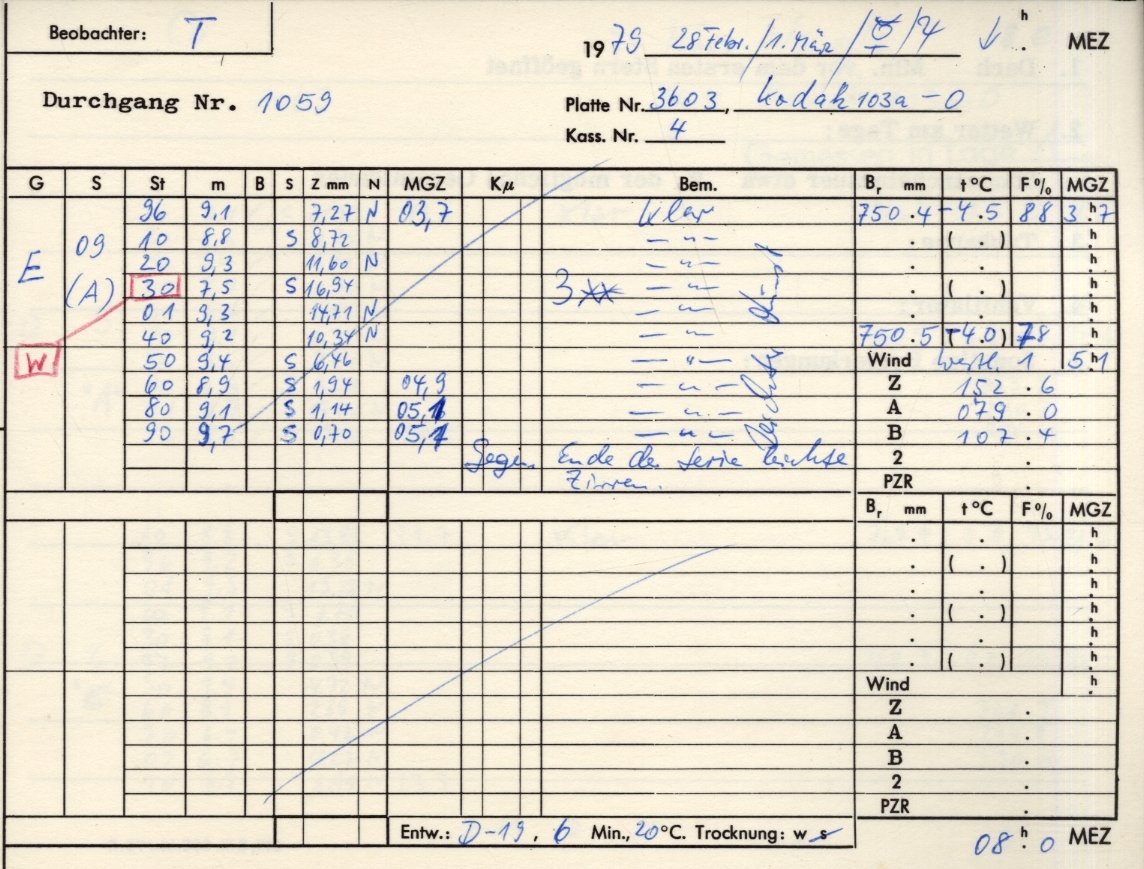 Beobachter: T
1979 28 Febr./1. März / MEZ
Durchgang Nr. 1059
Platte Nr. 3603, Kodak 103a-O
Kass. Nr. 4
G S St m B S Z mm N MGZ Kμ Bem. Br mm t °C F % MGZ
96 9,1 7,27 N 03,7 klar 750.4 -4.5 88 3h.7
E 09 10 8,8 S 8,72 — " — . ( . ) h.
20 9,3 11,60 N — " — . . h.
(A) 30 7,5 S 16,94 3** — " — . ( . ) h.
01 9,3 14,71 N — " — . . h.
W 40 9,2 10,34 N — " — 750.5 (-4.0) 78 h.
50 9,4 S 6,46 — " — Wind westl. 1 5h.1
60 8,9 S 1,94 04,9 — " — Z 152.6
80 9,1 S 1,14 05,1 — " — A 079.0
90 9,7 S 0,70 05,1 — " — B 107.4
Gegen Ende der Serie leichte 2 .
Zirren. PZR .
leichter Dunst
Br mm t °C F % MGZ
. . h.
. ( . ) h.
. . h.
. ( . ) h.
. . h.
. ( . ) h.
Wind h.
Z .
A .
B .
2 .
PZR .
Entw.: D-19, 6 Min., 20°C. Trocknung: w s
08h.0 MEZ